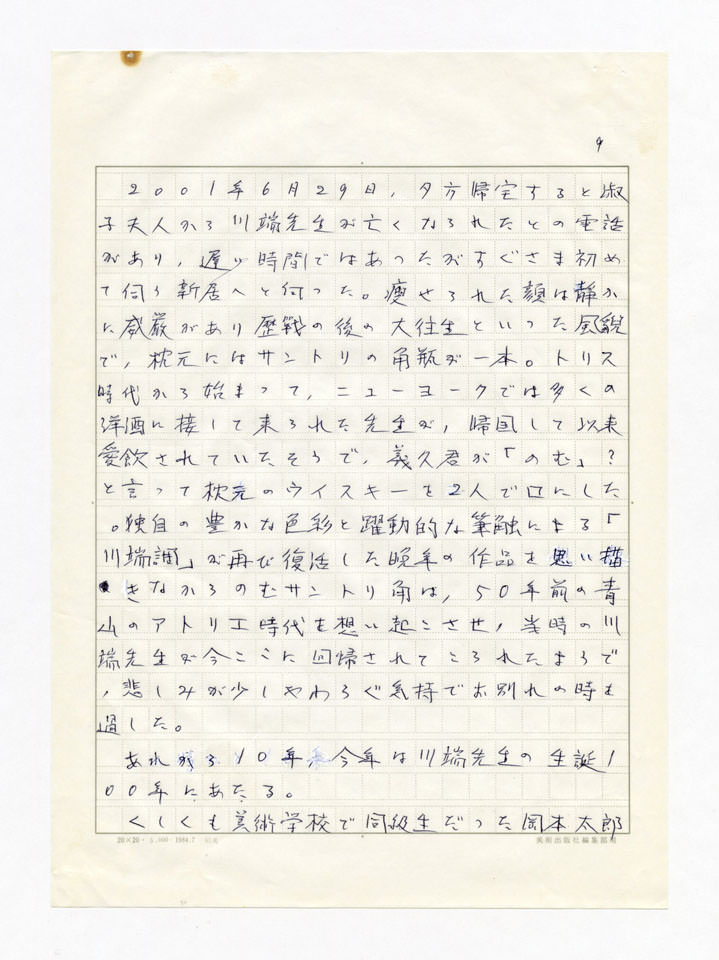 9
2001年6月29日，夕方帰宅すると淑
子夫人から川端先生が亡くなられたとの電話
があり，遅い時間ではあったがすぐさま初め
て伺う新居へと伺った。痩せられた顔は静か
に威厳があり歴戦の後の大往生といった風貌
で，枕元にはサントリの角瓶が一本。トリス
時代から始まって，ニューヨークでは多くの
洋酒に接して来られた先生が，帰国して以来
愛飲されていたそうで，義久君が「のむ」？
と言って枕元のウイスキーを2人で口にした
。独自の豊かな色彩と躍動的な筆触による「
川端調」が再び復活した晩年の作品を思い描
きながらのむサントリ角は，50年前の青
山のアトリエ時代を想い起こさせ，当時の川
端先生が今ここに回帰されてこられたようで
，悲しみが少しやわらぐ気持でお別れの時を
過した。
あれから10年　今年は川端先生の生誕1
00年にあたる。
くしくも美術学校で同級生だった岡本太郎
20×20 1984.7 美術出版社編集部用